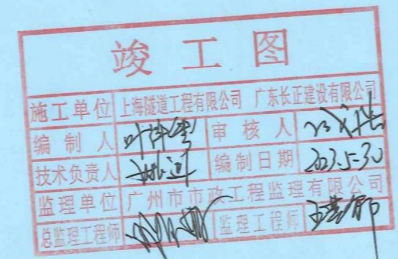 竣工图
施工单位 上海隧道工程有限公司 广东长正建设有限公司
编制人 审核人
技术负责人 编制日期 2023.5.30
监理单位 广州市市政工程监理有限公司
总监理工程师 监理工程师